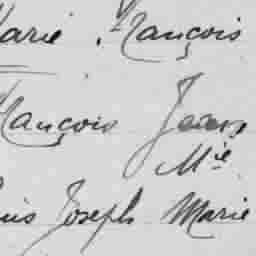 Marie François
François Jean
Mie
Louis Joseph Marie